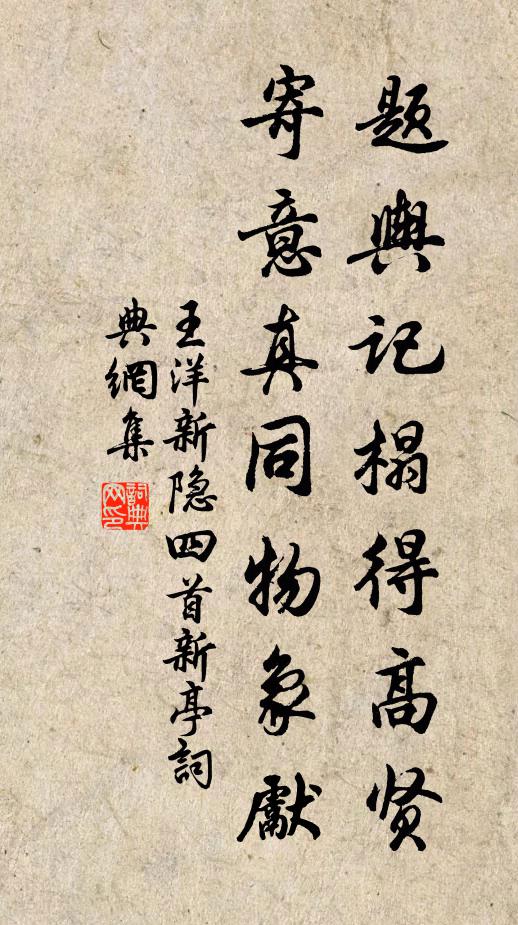 题舆记榻得高贤
寄意真同物象献
王洋新隐四首新亭词
典網集
詞典
网印